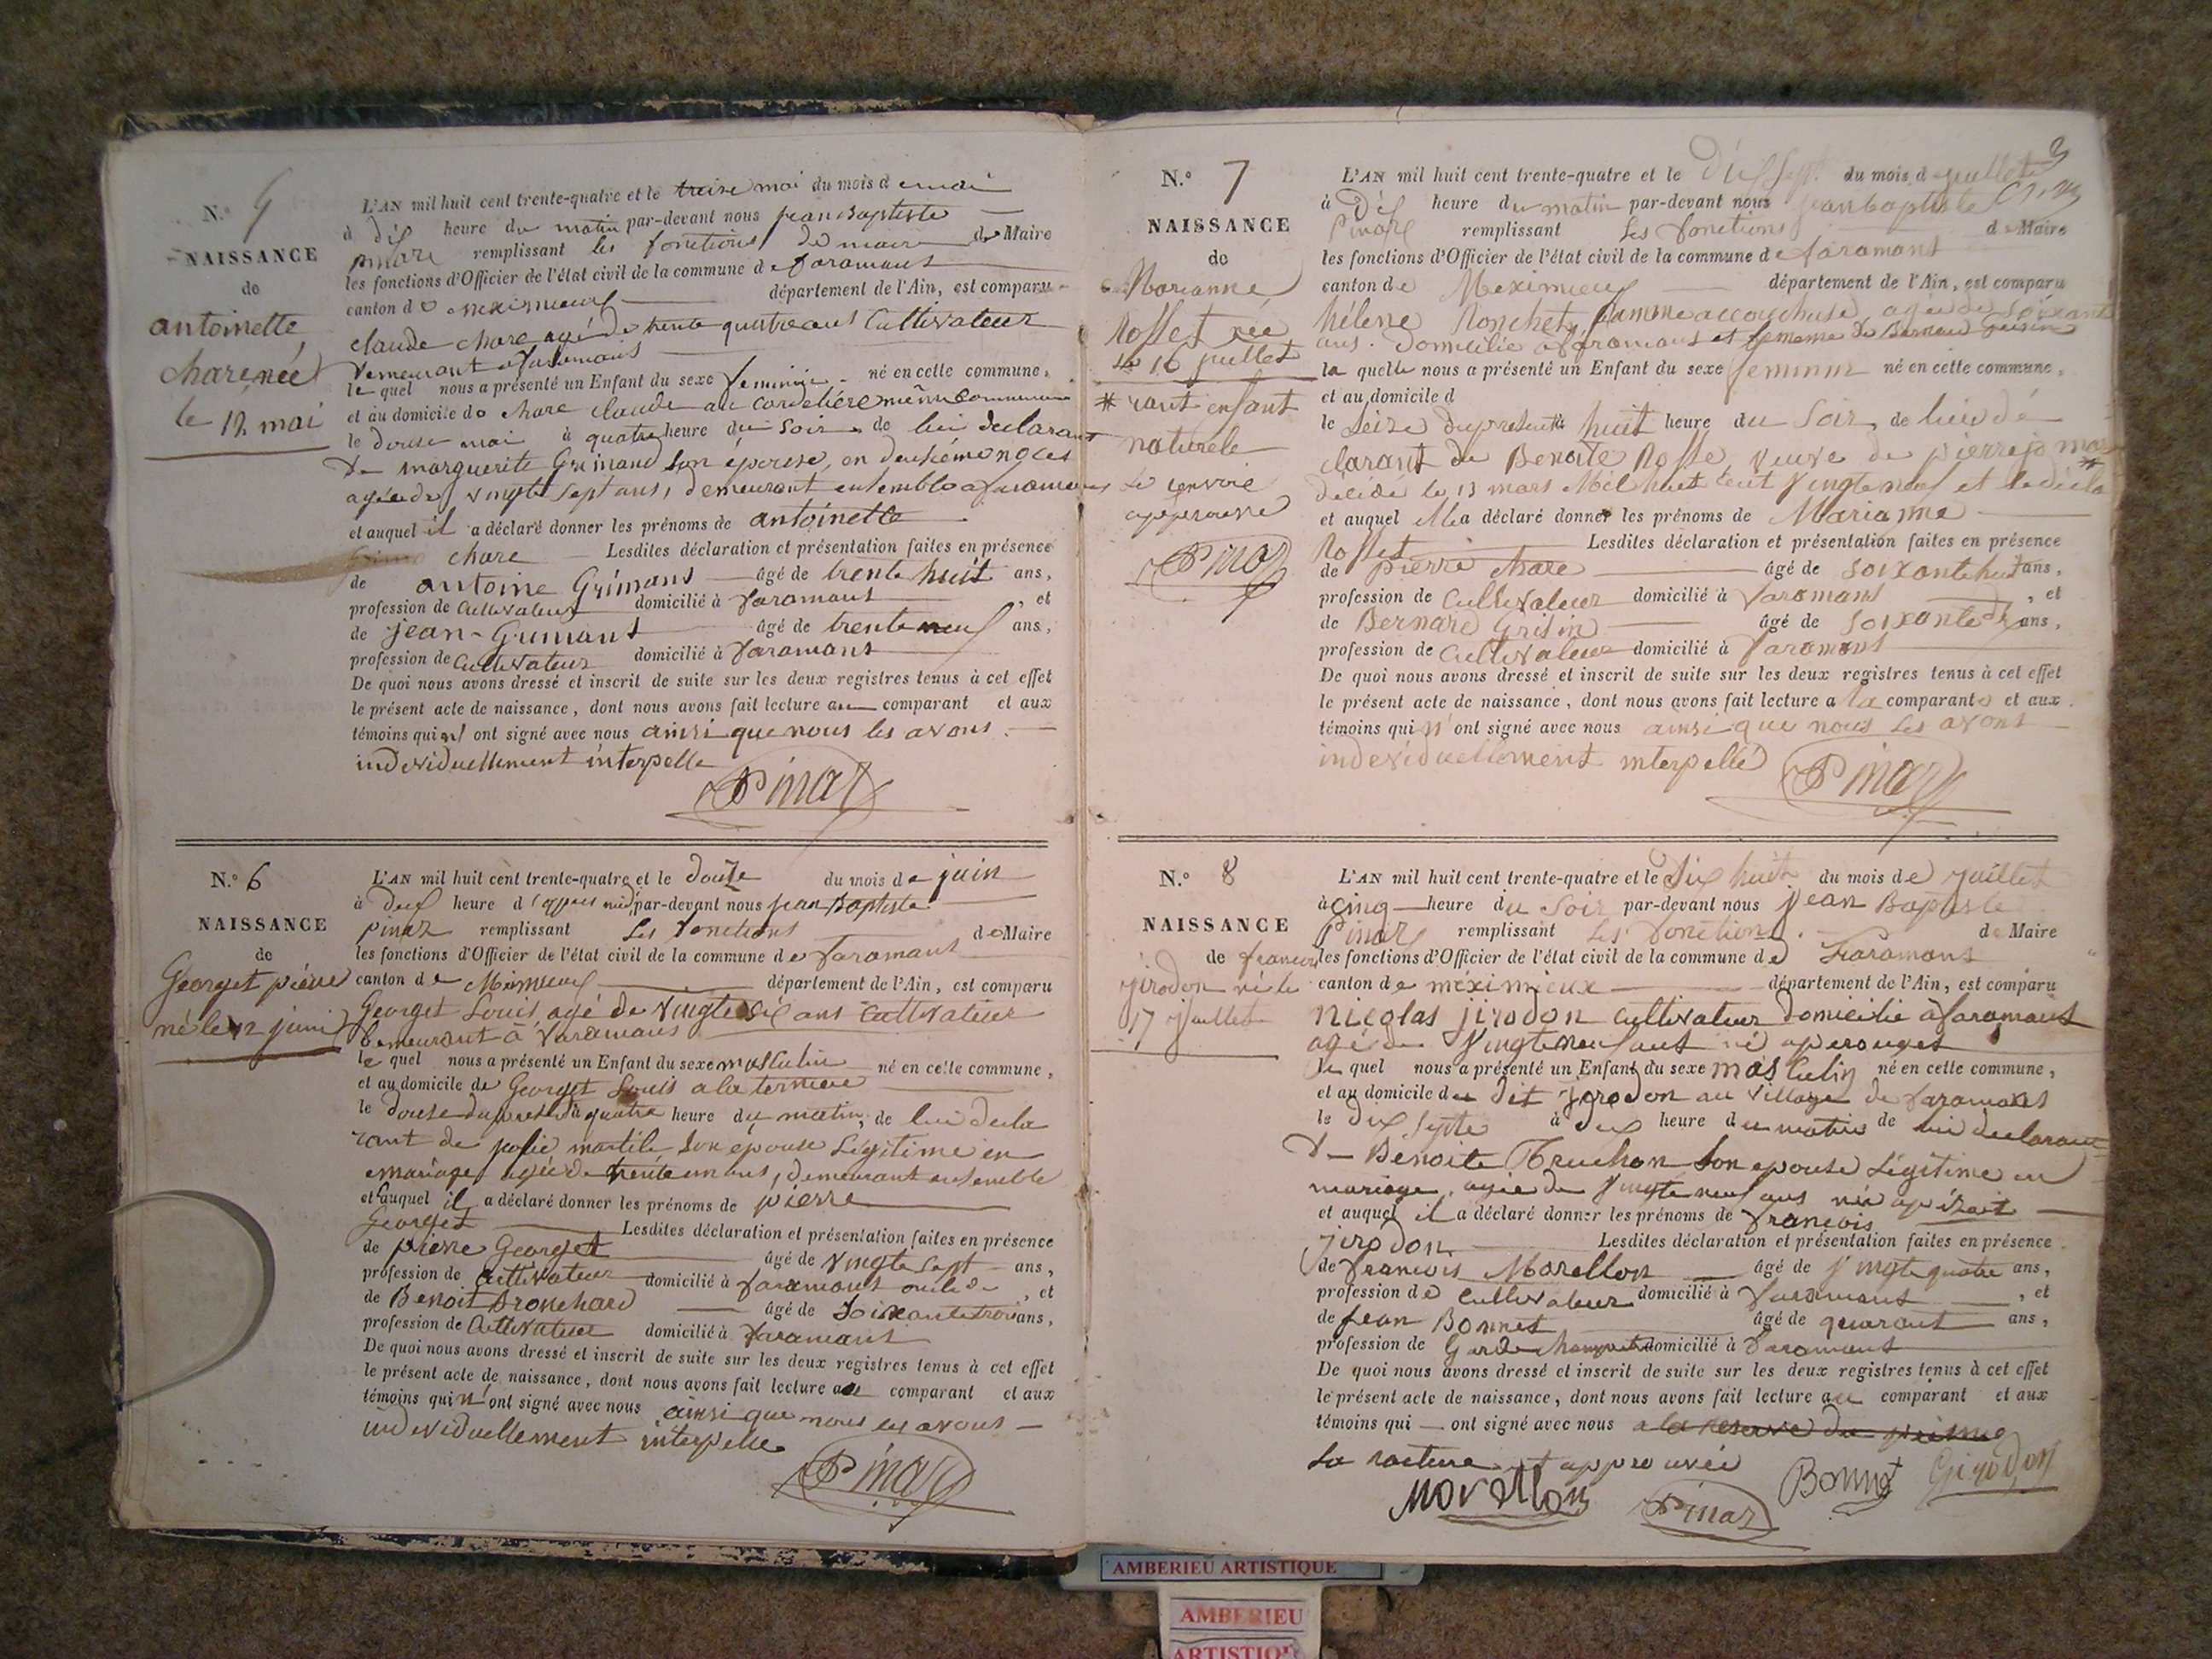 N.° 5
NAISSANCE
de
antoinette
chare née
le 12 mai
L'AN mil huit cent trente-quatre et le treize mai du mois d e mai
à dix heure du matin par-devant nous jean Baptiste
pinaz remplissant les fonctions de maire de Maire
les fonctions d'Officier de l'état civil de la commune de faramans
canton de meximieux département de l'Ain, est comparu
claude chare agé de trente quatre ans Cultivateur
demeurant a faramans
le quel nous a présenté un Enfant du sexe feminin né en cette commune,
et au domicile de chare claude au cordeliére même commune
le douse mai à quatre heure du soir de lui declarant
de marguerite Grimand son épouse, en deuxiéme noces
agée de vingt sept ans, demeurant ensemble a faramans
et auquel il a déclaré donner les prénoms de antoinette
chare Lesdites déclaration et présentation faites en présence
de antoine Grimans âgé de trente huit ans,
profession de Cultivateur domicilié à faramans, et
de jean Grimans âgé de trente neuf ans,
profession de Cultivateur domicilié à faramans
De quoi nous avons dressé et inscrit de suite sur les deux registres tenus à cet effet
le présent acte de naissance, dont nous avons fait lecture au comparant et aux
témoins qui n' ont signé avec nous ainsi que nous les avons
individuellement interpelle
Pinaz
N.° 6
NAISSANCE
de
Georget piérre
né le 12 juin
L'AN mil huit cent trente-quatre et le douze du mois de juin
à deux heure d par-devant nous jean Baptiste
pinaz remplissant les fonctions de Maire
les fonctions d'Officier de l'état civil de la commune de faramans
canton de département de l'Ain, est comparu
Georget Louis agé de vingt six ans Cultivateur
demeurant à faramans
le quel nous a présenté un Enfant du sexe masculin né en cette commune,
et au domicile de Georget Louis a la
le douse du present à quatre heure du matin, de lui decla
rant de son epouse Légitime en
mariage, agée de trente un ans, demeurant ensemble
et auquel il a déclaré donner les prénoms de pierre
Georget Lesdites déclaration et présentation faites en présence
de pierre Georget âgé de vingt sept ans,
profession de Cultivateur domicilié à faramans, et
de Benoit Bronchard âgé de soixante trois ans,
profession de Cultivateur domicilié à faramans
De quoi nous avons dressé et inscrit de suite sur les deux registres tenus à cet effet
le présent acte de naissance, dont nous avons fait lecture au comparant et aux
témoins qui n' ont signé avec nous ainsi que nous les avons
individuellement interpelle
Pinaz
N.° 7
NAISSANCE
de
Marianne
Rosset née
le 16 juillet
* rant enfant
naturele
le renvoie
approuvé
Pinaz
L'AN mil huit cent trente-quatre et le Dix sept du mois de juillet
à Dix heure du matin par-devant nous jean baptiste
Pinaz remplissant les fonctions de Maire
les fonctions d'Officier de l'état civil de la commune de faramans
canton de Meximieux département de l'Ain, est comparu
héléne Ronchet, famme accouchuse, agée de soixante
ans. Domicilié a faramans et femme de Bernard Grisin
la quelle nous a présenté un Enfant du sexe feminin né en cette commune,
et au domicile d
le seize du present à huit heure du soir, de lui dé
clarant de Benoite Rosse, veuve de pierre
décédé le 13 mars Mil huit cent vingt neuf et la décla
et auquel Ella déclaré donner les prénoms de Marianne
Rosset Lesdites déclaration et présentation faites en présence
de pierre chare âgé de soixante huit ans,
profession de Cultivateur domicilié à faramans, et
de Bernard Grisin âgé de soixante dix ans,
profession de Cultivateur domicilié à faramans
De quoi nous avons dressé et inscrit de suite sur les deux registres tenus à cet effet
le présent acte de naissance, dont nous avons fait lecture a la comparante et aux
témoins qui n' ont signé avec nous ainsi que nous les avons
individuellement interpellé
Pinaz
N.° 8
NAISSANCE
de francois
jirodon né le
17 juillet
L'AN mil huit cent trente-quatre et le Dix huit du mois de juillet
à cinq heure du soir par-devant nous jean Baptiste
Pinaz remplissant les fonctions de Maire
les fonctions d'Officier de l'état civil de la commune de Faramans
canton de méximieux département de l'Ain, est comparu
nicolas jirodon cultivateur domicilié à faramans
agé de vingt neuf ans né a perouges
le quel nous a présenté un Enfant du sexe masculin né en cette commune,
et au domicile du dit jirodon au village de faramans
le dix septe à deux heure du matin de lui declarant
de Benoite Truchon son epouse Légitime en
mariage, agée de vingt neuf ans née a
et auquel il a déclaré donner les prénoms de francois
jirodon Lesdites déclaration et présentation faites en présence
de francois Morellon âgé de vingt quatre ans,
profession de cultivateur domicilié à faramans, et
de jean Bonnet âgé de quarant ans,
profession de Garde domicilié à faramans
De quoi nous avons dressé et inscrit de suite sur les deux registres tenus à cet effet
le présent acte de naissance, dont nous avons fait lecture au comparant et aux
témoins qui — ont signé avec nous a la reserve du
La rature est approuvée
Morellon Pinaz Bonnet Girodon
AMBERIEU ARTISTIQUE
AMBERIEU
ARTISTIQUE